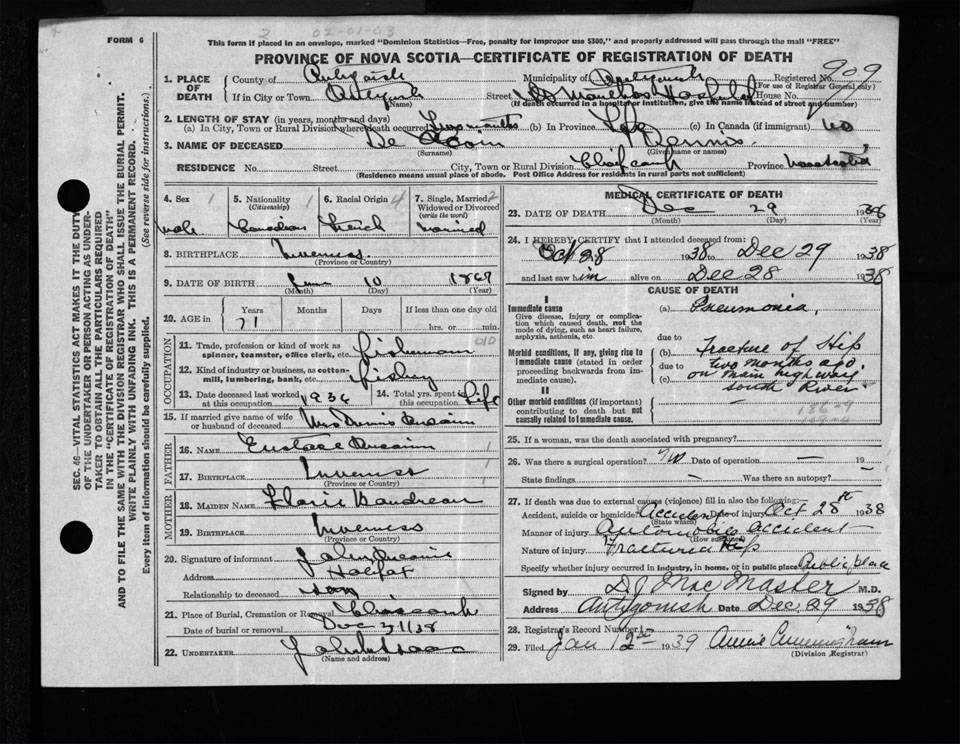 FORM 6
2 02-01-03
This form if placed in an envelope, marked "Dominion Statistics—Free, penalty for improper use $300," and properly addressed will pass through the mail "FREE"
PROVINCE OF NOVA SCOTIA—CERTIFICATE OF REGISTRATION OF DEATH
SEC. 46—VITAL STATISTICS ACT MAKES IT THE DUTY OF THE UNDERTAKER OR PERSON ACTING AS UNDERTAKER TO OBTAIN ALL THE PARTICULARS REQUIRED IN THE "CERTIFICATE OF REGISTRATION OF DEATH" AND TO FILE THE SAME WITH THE DIVISION REGISTRAR WHO SHALL ISSUE THE BURIAL PERMIT.
WRITE PLAINLY WITH UNFADING INK. THIS IS A PERMANENT RECORD.
Every item of information should be carefully supplied. (See reverse side for instructions.)
1. PLACE OF DEATH County of Municipality of Registered No. 909
(For use of Registrar General only)
If in City or Town Street St Marthas Hospital House No.
(Name) (If death occurred in a hospital or institution, give the name instead of street and number)
2. LENGTH OF STAY (in years, months and days)
(a) In City, Town or Rural Division where death occurred Two months (b) In Province Life (c) In Canada (if immigrant) no
3. NAME OF DECEASED De Coin Dennis
(Surname) (Given name or names)
RESIDENCE No. Street City, Town or Rural Division Province Nova Scotia
(Residence means usual place of abode. Post Office Address for residents in rural parts not sufficient)
4. Sex 1 5. Nationality 1 (Citizenship) 6. Racial Origin 4 7. Single, Married, 2 Widowed or Divorced (write the word)
male Canadian French married
8. BIRTHPLACE Inverness
(Province or Country)
9. DATE OF BIRTH 10 1867
(Month) (Day) (Year)
10. AGE in Years Months Days If less than one day old
71 hrs. or min.
OCCUPATION
11. Trade, profession or kind of work as spinner, teamster, office clerk, etc. fisherman 010
12. Kind of industry or business, as cotton-mill, lumbering, bank, etc. fishing
13. Date deceased last worked at this occupation 1936 14. Total yrs. spent in this occupation Life
15. If married give name of wife or husband of deceased Mrs Dennis
FATHER
16. NAME Eustace 1
17. BIRTHPLACE Inverness 1
(Province or Country)
MOTHER
18. MAIDEN NAME Boudreau
19. BIRTHPLACE Inverness
(Province or Country)
20. Signature of informant John
Address Halifax
Relationship to deceased son
21. Place of Burial, Cremation or Removal
Date of burial or removal Dec 31/38
22. UNDERTAKER
(Name and address)
MEDICAL CERTIFICATE OF DEATH
23. DATE OF DEATH Dec 29 1938
(Month) (Day) (Year)
24. I HEREBY CERTIFY that I attended deceased from:
Oct 28 1938 to Dec 29 1938
and last saw him alive on Dec 28 1938
CAUSE OF DEATH
I
Immediate cause
Give disease, injury or complication which caused death, not the mode of dying, such as heart failure, asphyxia, asthenia, etc.
(a) Pneumonia,
due to
Morbid conditions, if any, giving rise to immediate cause (stated in order proceeding backwards from immediate cause).
(b) Fracture of Hip
due to two months ago
(c) on main highway
South River
II
Other morbid conditions (if important) contributing to death but not causally related to immediate cause.
186-9
25. If a woman, was the death associated with pregnancy?
26. Was there a surgical operation? No Date of operation — 19 —
State findings — Was there an autopsy?
27. If death was due to external causes (violence) fill in also the following:
Accident, suicide or homicide? Accident Date of injury Oct 28th 1938
(State which)
Manner of injury Automobile accident
(How sustained)
Nature of injury Fractured Hip
Specify whether injury occurred in industry, in home, or in public place Public place
Signed by D J MacMaster M.D.
Address Antigonish Date Dec. 29 1938
28. Registrar's Record Number
29. Filed Jan 12th 1939 Annie Cunningham
(Division Registrar)